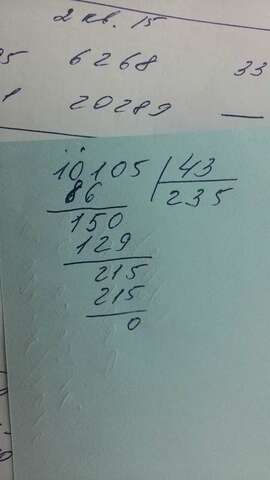 2 кв. 15
6268 33
20289
10105 43
86 235
150
129
215
215
0